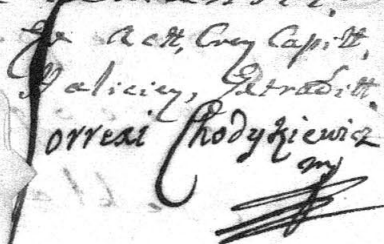 Ex Actt, Crey Capitt,
Haliciey, Extraditt
Correxi Chodykiewicz
mp